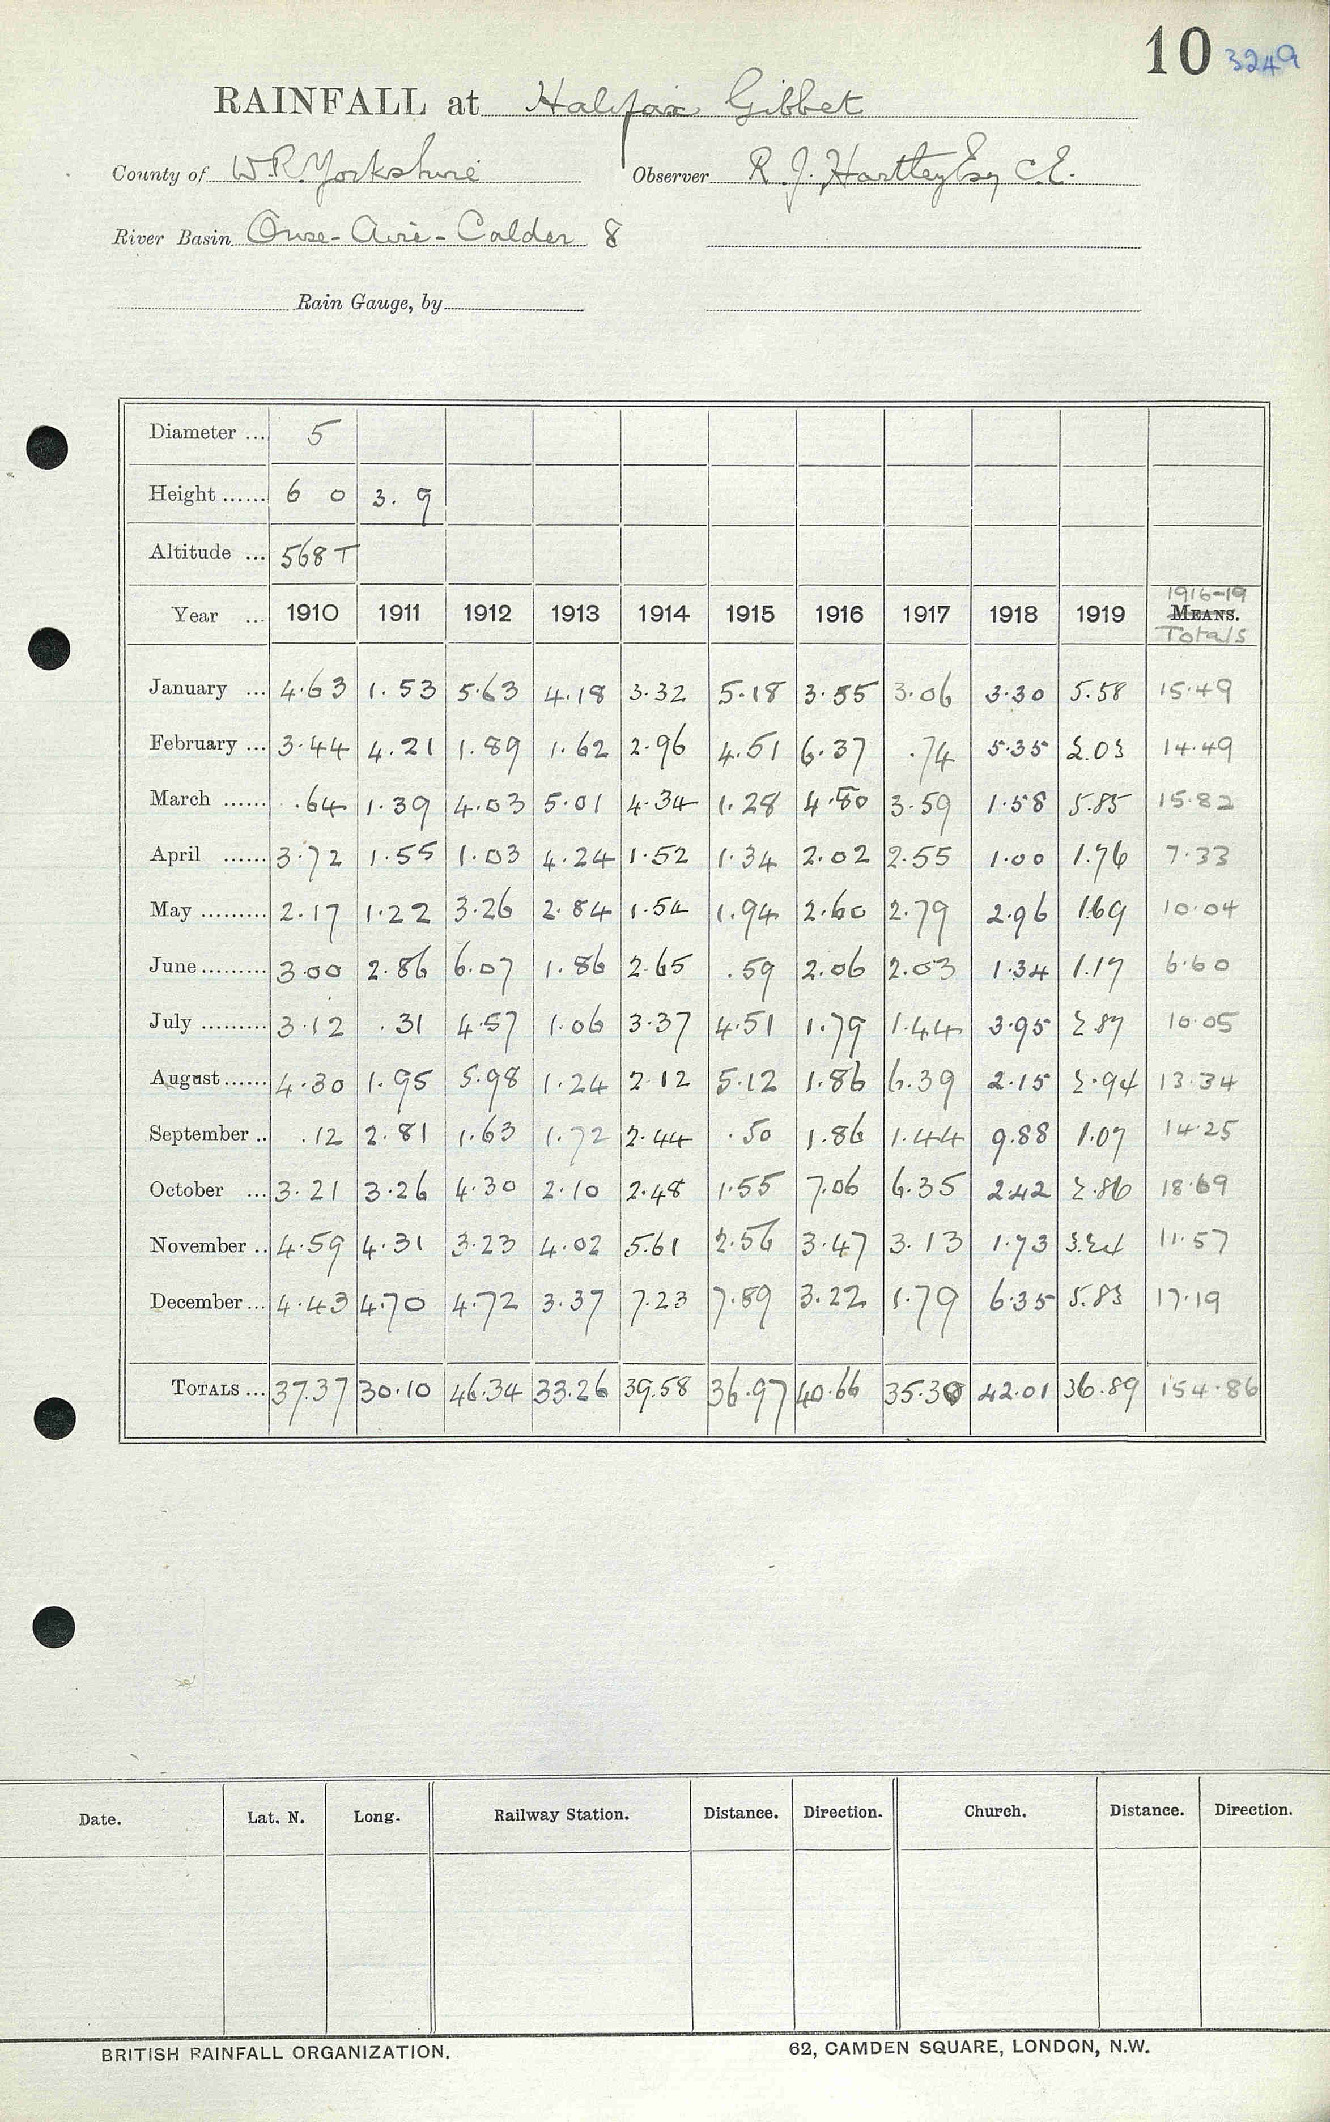 10 3249
RAINFALL at Halifax Gibbet
County of W.R. Yorkshire Observer R. J. Hartley Esq C.E.
River Basin Ouse-Aire-Calder 8
Rain Gauge, by
Diameter ... 5
Height ...... 6 0 3. 9
Altitude ... 568 T
1916-19
Year ... 1910 1911 1912 1913 1914 1915 1916 1917 1918 1919 MEANS.
Totals
January ... 4.63 1.53 5.63 4.18 3.32 5.18 3.55 3.06 3.30 5.58 15.49
February ... 3.44 4.21 1.89 1.62 2.96 4.51 6.37 .74 5.35 2.03 14.49
March ...... .64 1.39 4.03 5.01 4.34 1.28 4.80 3.59 1.58 5.85 15.82
April ...... 3.72 1.55 1.03 4.24 1.52 1.34 2.02 2.55 1.00 1.76 7.33
May ......... 2.17 1.22 3.26 2.84 1.54 1.94 2.60 2.79 2.96 1.69 10.04
June ......... 3.00 2.86 6.07 1.86 2.65 .59 2.06 2.03 1.34 1.17 6.60
July ......... 3.12 .31 4.57 1.06 3.37 4.51 1.79 1.44 3.95 2.87 10.05
August ...... 4.30 1.95 5.98 1.24 2.12 5.12 1.86 6.39 2.15 2.94 13.34
September .. .12 2.81 1.63 1.72 2.44 .50 1.86 1.44 9.88 1.07 14.25
October ... 3.21 3.26 4.30 2.10 2.48 1.55 7.06 6.35 2.42 2.86 18.69
November .. 4.59 4.31 3.23 4.02 5.61 2.56 3.47 3.13 1.73 3.24 11.57
December ... 4.43 4.70 4.72 3.37 7.23 7.89 3.22 1.79 6.35 5.83 17.19
TOTALS ... 37.37 30.10 46.34 33.26 39.58 36.97 40.66 35.30 42.01 36.89 154.86
Date. Lat. N. Long. Railway Station. Distance. Direction. Church. Distance. Direction.
BRITISH RAINFALL ORGANIZATION. 62, CAMDEN SQUARE, LONDON, N.W.